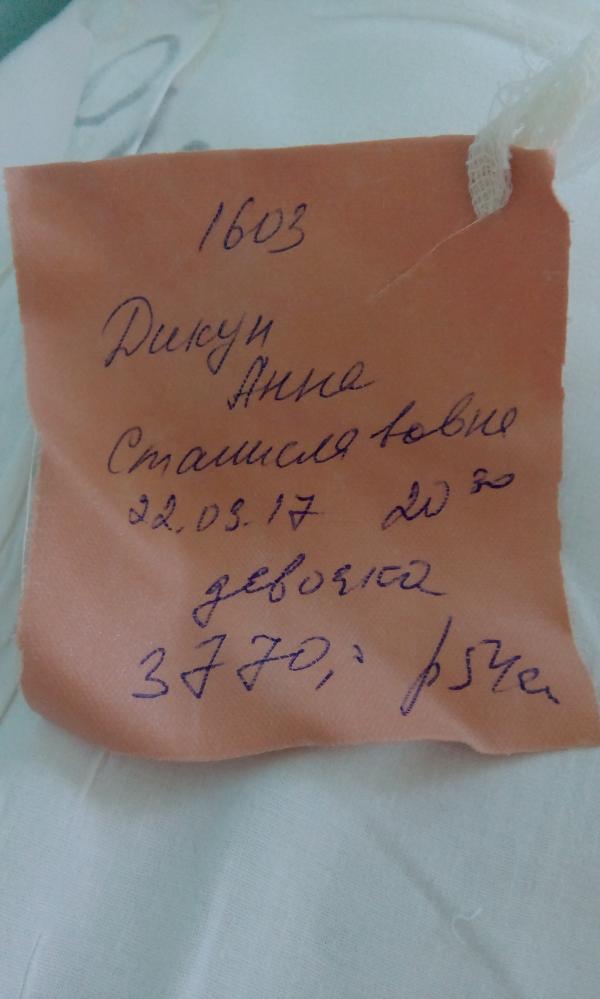 1603
Дикун
Анна
Станиславовна
22.03.17 20 30
девочка
3770,0 р 54см